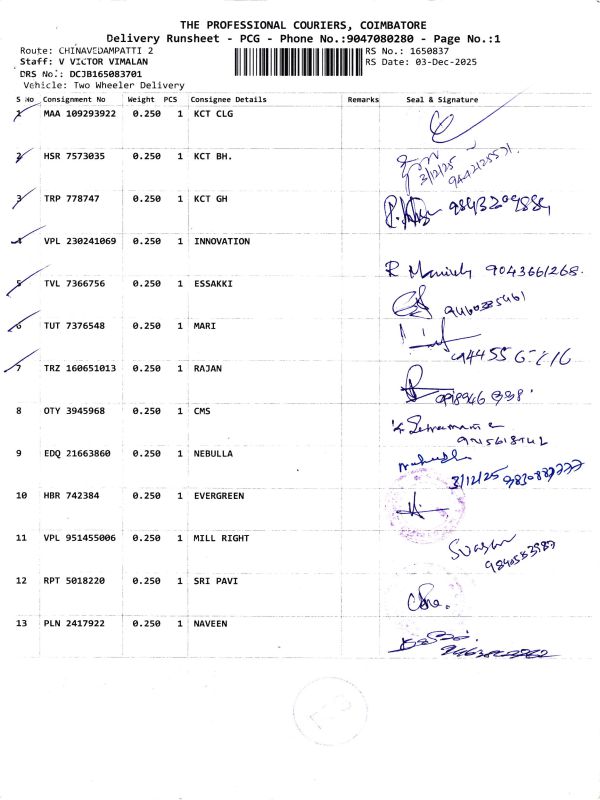 THE PROFESSIONAL COURIERS, COIMBATORE
Delivery Runsheet - PCG - Phone No.:9047080280 - Page No.:1
Route: CHINAVEDAMPATTI 2 RS No.: 1650837
Staff: V VICTOR VIMALAN RS Date: 03-Dec-2025
DRS No.: DCJB165083701
Vehicle: Two Wheeler Delivery
S No Consignment No Weight PCS Consignee Details Remarks Seal & Signature
1 MAA 109293922 0.250 1 KCT CLG
2 HSR 7573035 0.250 1 KCT BH.
3/12/25
3 TRP 778747 0.250 1 KCT GH
4 VPL 230241069 0.250 1 INNOVATION
R Manish 9043661268.
5 TVL 7366756 0.250 1 ESSAKKI
6 TUT 7376548 0.250 1 MARI
7 TRZ 160651013 0.250 1 RAJAN
8 OTY 3945968 0.250 1 CMS
9 EDQ 21663860 0.250 1 NEBULLA
3/12/25
10 HBR 742384 0.250 1 EVERGREEN
11 VPL 951455006 0.250 1 MILL RIGHT
12 RPT 5018220 0.250 1 SRI PAVI
13 PLN 2417922 0.250 1 NAVEEN